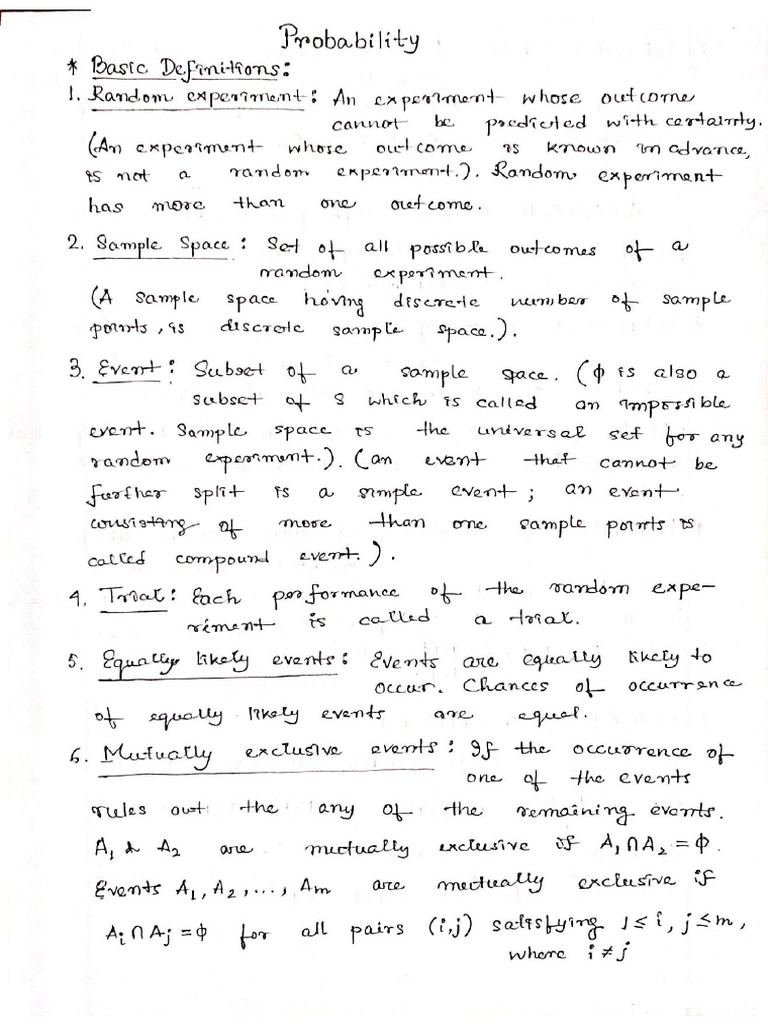 Probability
* Basic Definitions:
1. Random experiment: An experiment whose outcome
cannot be predicted with certainty.
(An experiment whose outcome is known in advance,
is not a random experiment.). Random experiment
has more than one outcome.
2. Sample Space: Set of all possible outcomes of a
random experiment.
(A sample space having discrete number of sample
points, is discrete sample space.).
3. Event: Subset of a sample space. (ϕ is also a
subset of S which is called an impossible
event. Sample space is the universal set for any
random experiment.). (an event that cannot be
further split is a simple event; an event
consisting of more than one sample points is
called compound event.).
4. Trial: Each performance of the random expe-
riment is called a trial.
5. Equally likely events: Events are equally likely to
occur. Chances of occurrence
of equally likely events are equal.
6. Mutually exclusive events: If the occurrence of
one of the events
rules out the any of the remaining events.
A₁ & A₂ are mutually exclusive if A₁ ∩ A₂ = ϕ.
Events A₁, A₂, ..., Am are mutually exclusive if
Ai ∩ Aj = ϕ for all pairs (i,j) satisfying 1 ≤ i, j ≤ m,
where i ≠ j